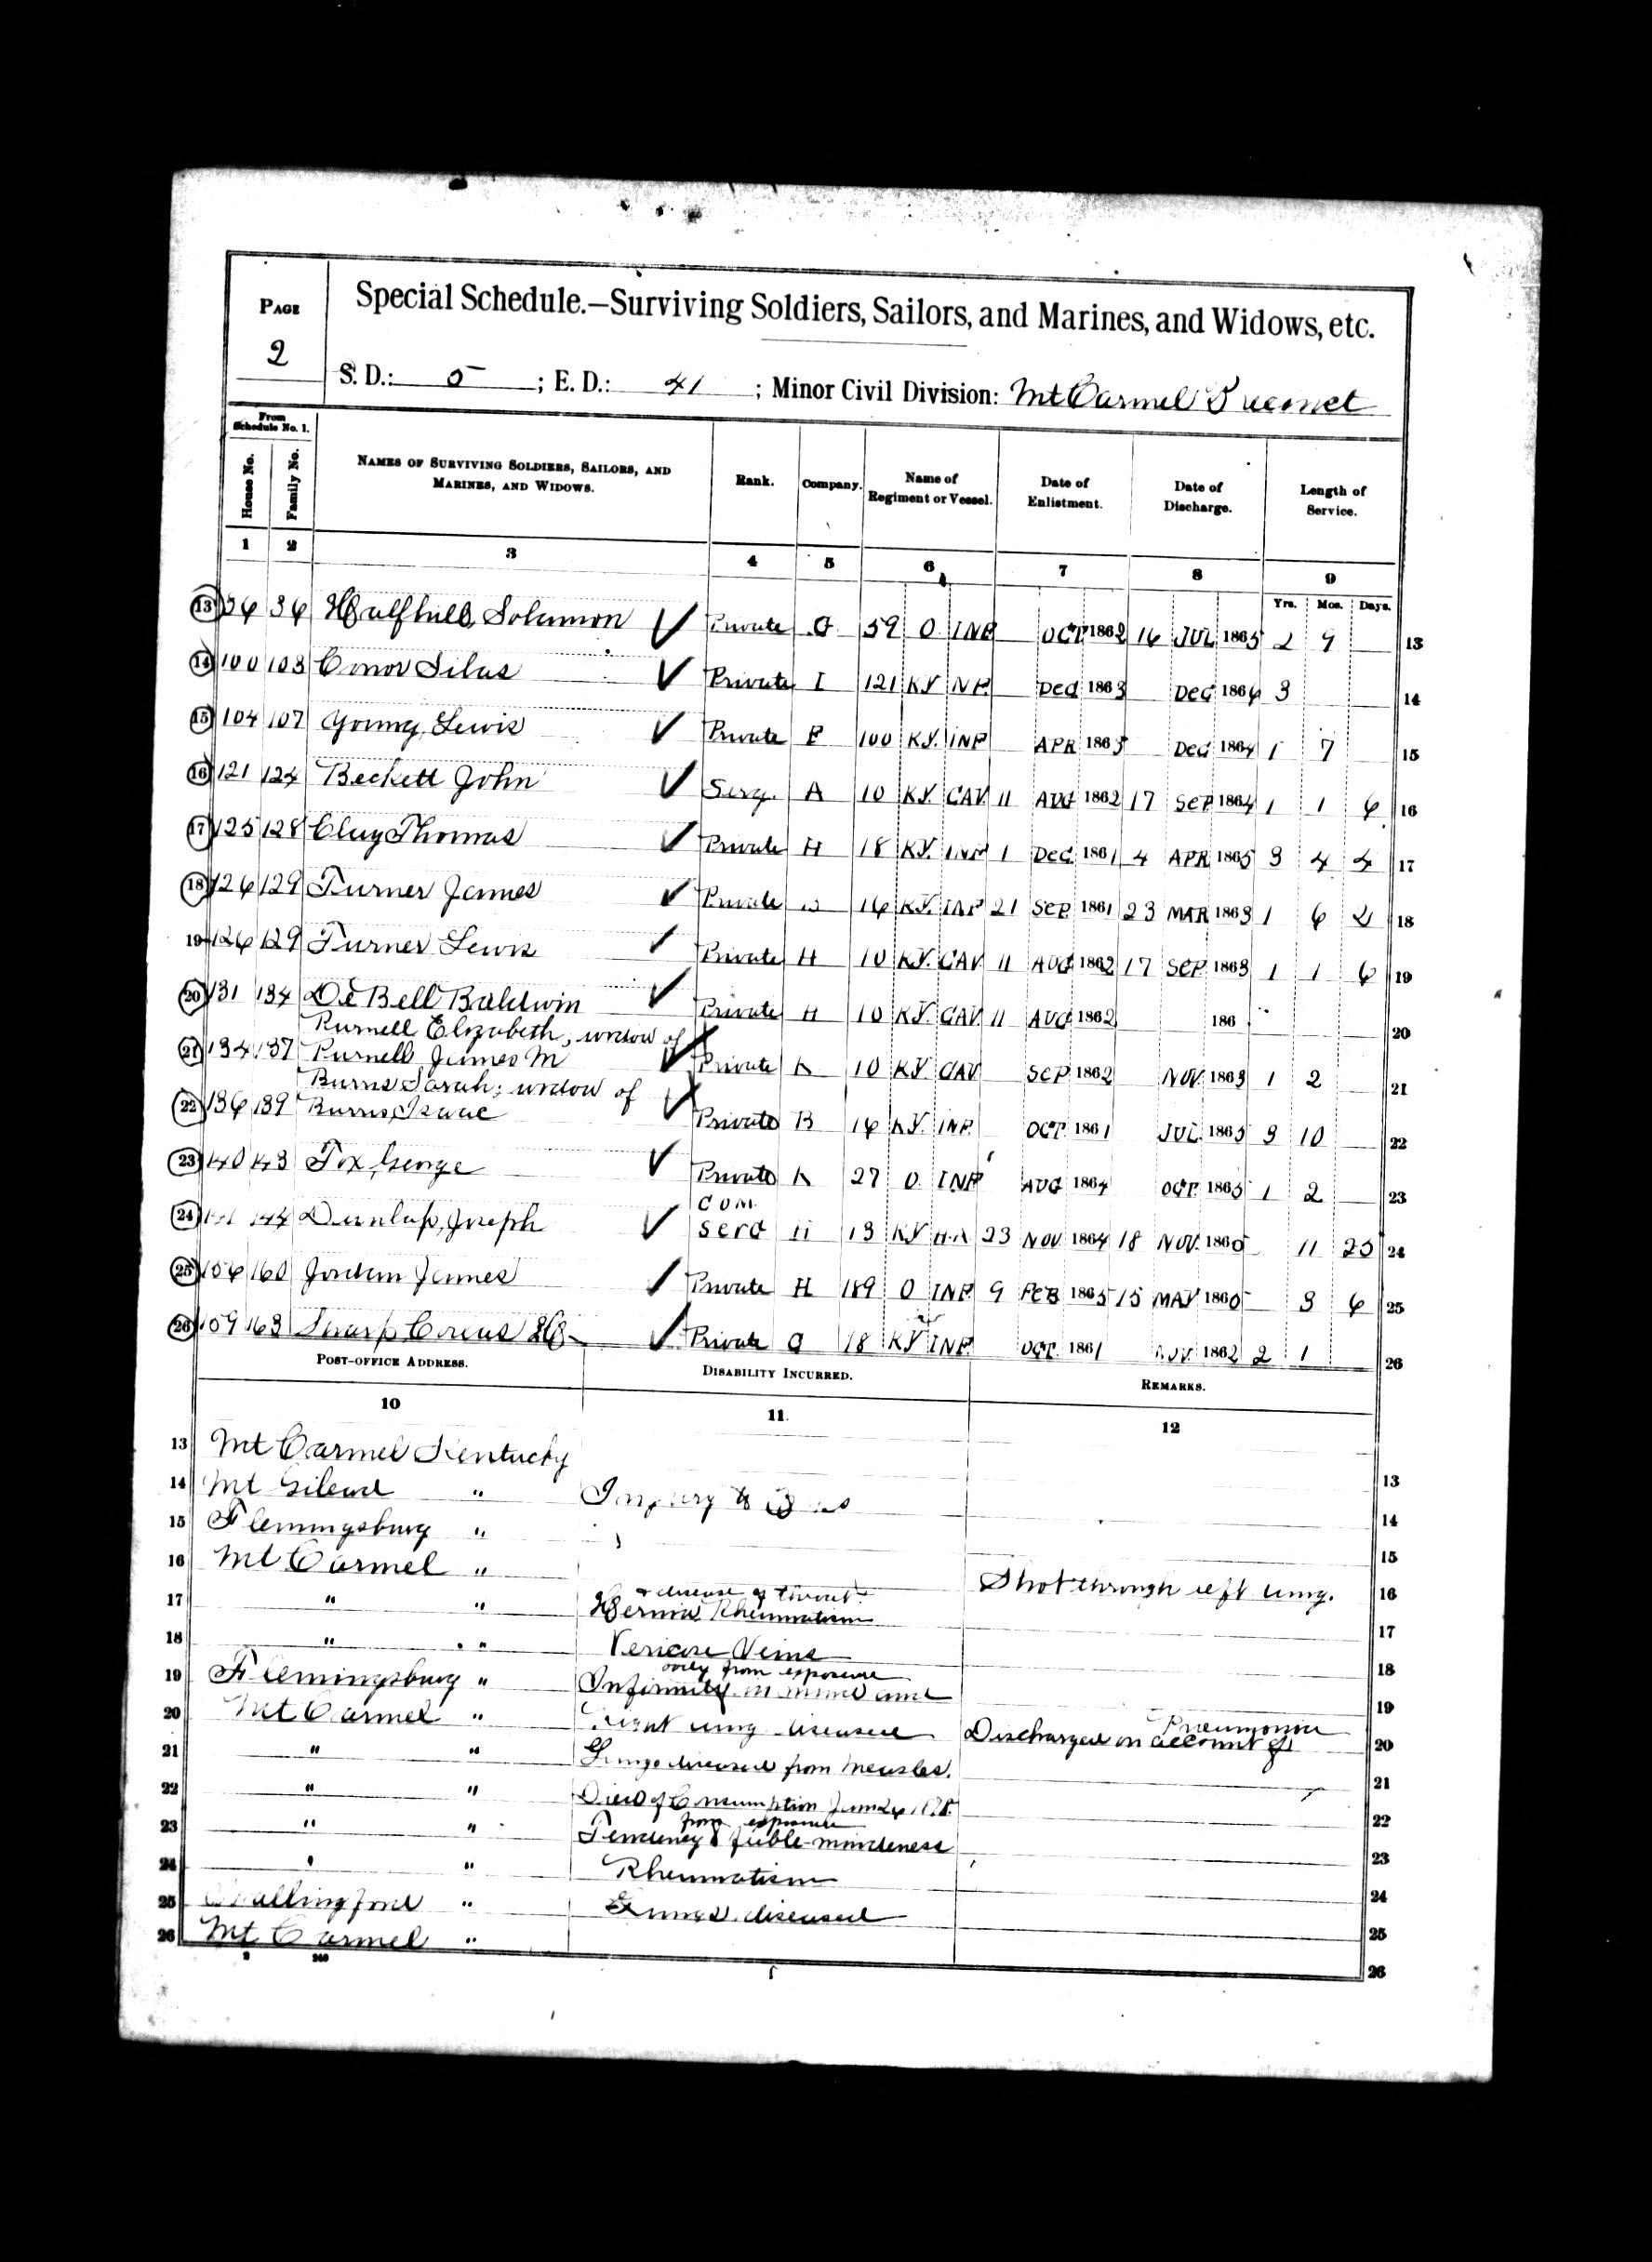 PAGE
2
Special Schedule.—Surviving Soldiers, Sailors, and Marines, and Widows, etc.
S. D.: 5 ; E. D.: 41 ; Minor Civil Division: Mt Carmel Precinct
From Schedule No. 1.
House No. Family No. NAMES OF SURVIVING SOLDIERS, SAILORS, AND MARINES, AND WIDOWS. Rank. Company. Name of Regiment or Vessel. Date of Enlistment. Date of Discharge. Length of Service.
1 2 3 4 5 6 7 8 9
Yrs. Mos. Days.
13 36 36 Solomon Private G 59 O INF OCT 1862 16 JUL 1865 2 9 13
14 100 103 Conor Silas Private I 121 KY INF DEC 1863 DEC 1866 3 14
15 104 107 Young, Lewis Private E 100 KY. INF APR 1863 DEC 1864 1 7 15
16 121 124 Beckett John Serg. A 10 KY. CAV 11 AUG 1862 17 SEP 1864 1 1 6 16
17 125 128 Clug Thomas Private H 18 KY. INF 1 DEC 1861 4 APR 1865 3 4 4 17
18 126 129 Turner James Private 16 KY. INF 21 SEP 1861 23 MAR 1863 1 6 2 18
19 126 129 Turner Lewis Private H 10 KY. CAV 11 AUG 1862 17 SEP 1863 1 1 6 19
20 131 134 De Bell Baldwin Private H 10 KY. CAV 11 AUG 1862 186 20
Purnell Elizabeth, widow of
21 134 137 Purnell James M Private K 10 KY CAV SEP 1862 NOV. 1863 1 2 21
Burris Sarah; widow of
22 136 139 Burris, Isaac Private B 16 KY. INF. OCT 1861 JUL 1865 3 10 22
23 140 143 Fox, George Private K 27 O. INF AUG 1864 OCT. 1865 1 2 23
COM.
24 144 Dunlap, Joseph Serg H 13 KY H.A 23 NOV 1864 18 NOV. 1865 11 25 24
25 156 160 Jordan James Private H 189 O INF. 9 FEB 1865 15 MAY 1865 3 6 25
26 159 163 Sharp Private G 18 KY INF. OCT 1861 NOV. 1862 2 1 26
POST-OFFICE ADDRESS. DISABILITY INCURRED. REMARKS.
10 11. 12
13 Mt Carmel Kentucky 13
14 Mt Gilead " Injury to 14
15 Flemingsburg " 15
16 Mt Carmel " Shot through left lung. 16
& disease of throat
17 " " Hernia Rheumatism 17
18 " " Vericose Veins 18
body from exposure
19 Flemingsburg " Infirmity in mind and 19
Pneumonia
20 Mt Carmel " Right lung diseased Discharged on account of 20
21 " " Lungs diseased from Measles. 21
22 " " Died of Consumption 22
from exposure
23 " " Tendency feeble-mindeness 23
24 " " Rheumatism 24
25 Wallingford " Lungs diseased 25
26 Mt Carmel " 26